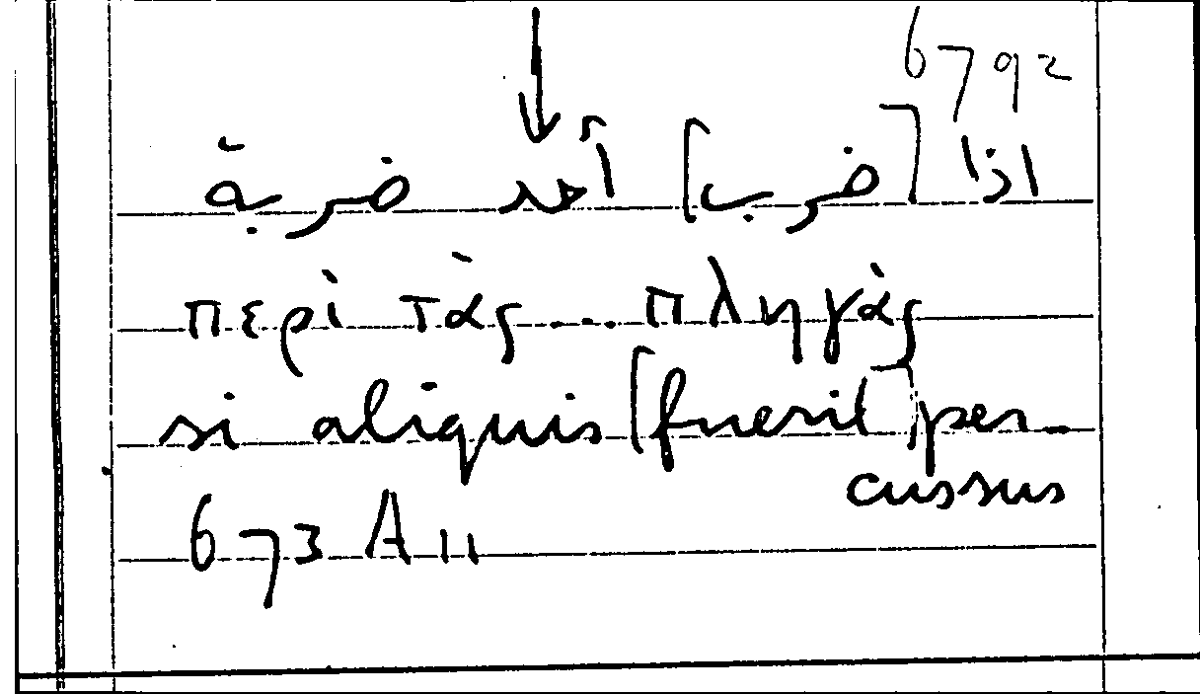 6792
اذا [ضرب] أحد ضربة
περὶ τὰς ... πληγὰς
si aliquis [fuerit] per-
cussus
673 A 11